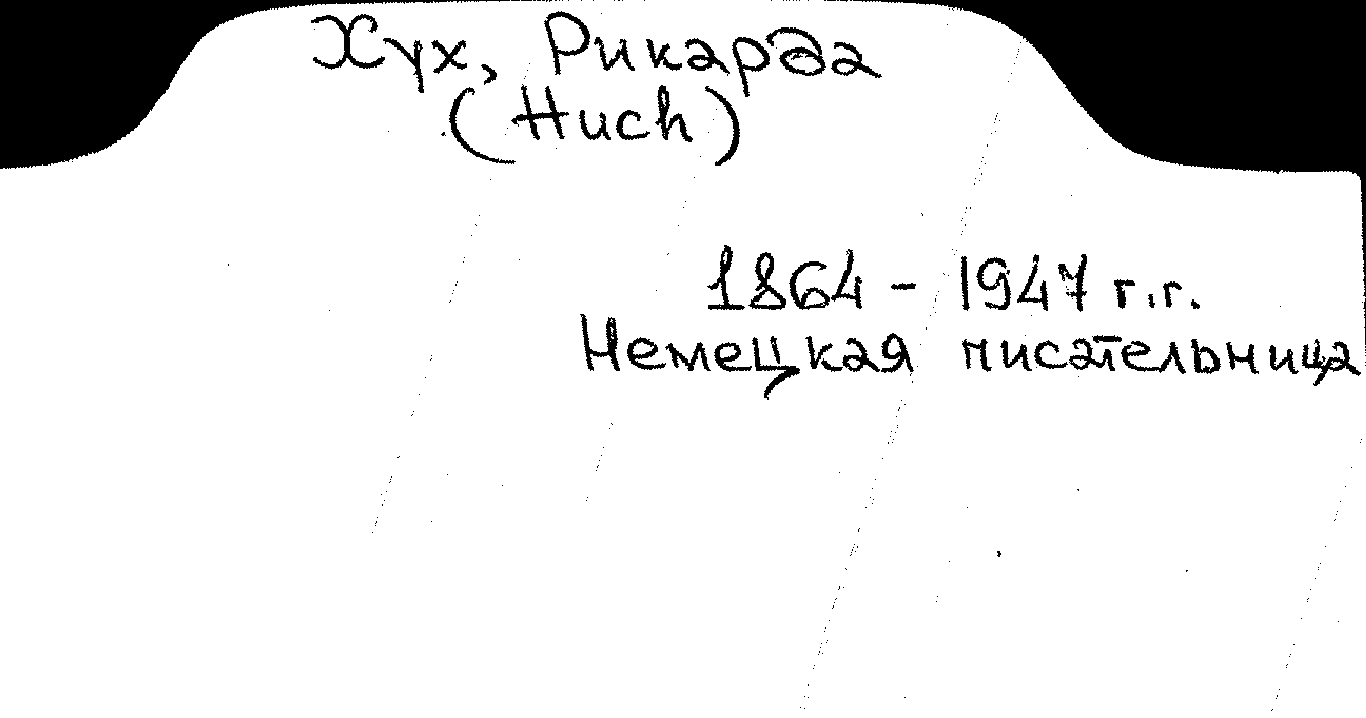 Хух, Рикарда
(Huch)
1864 - 1947 г.г.
Немецкая писательница